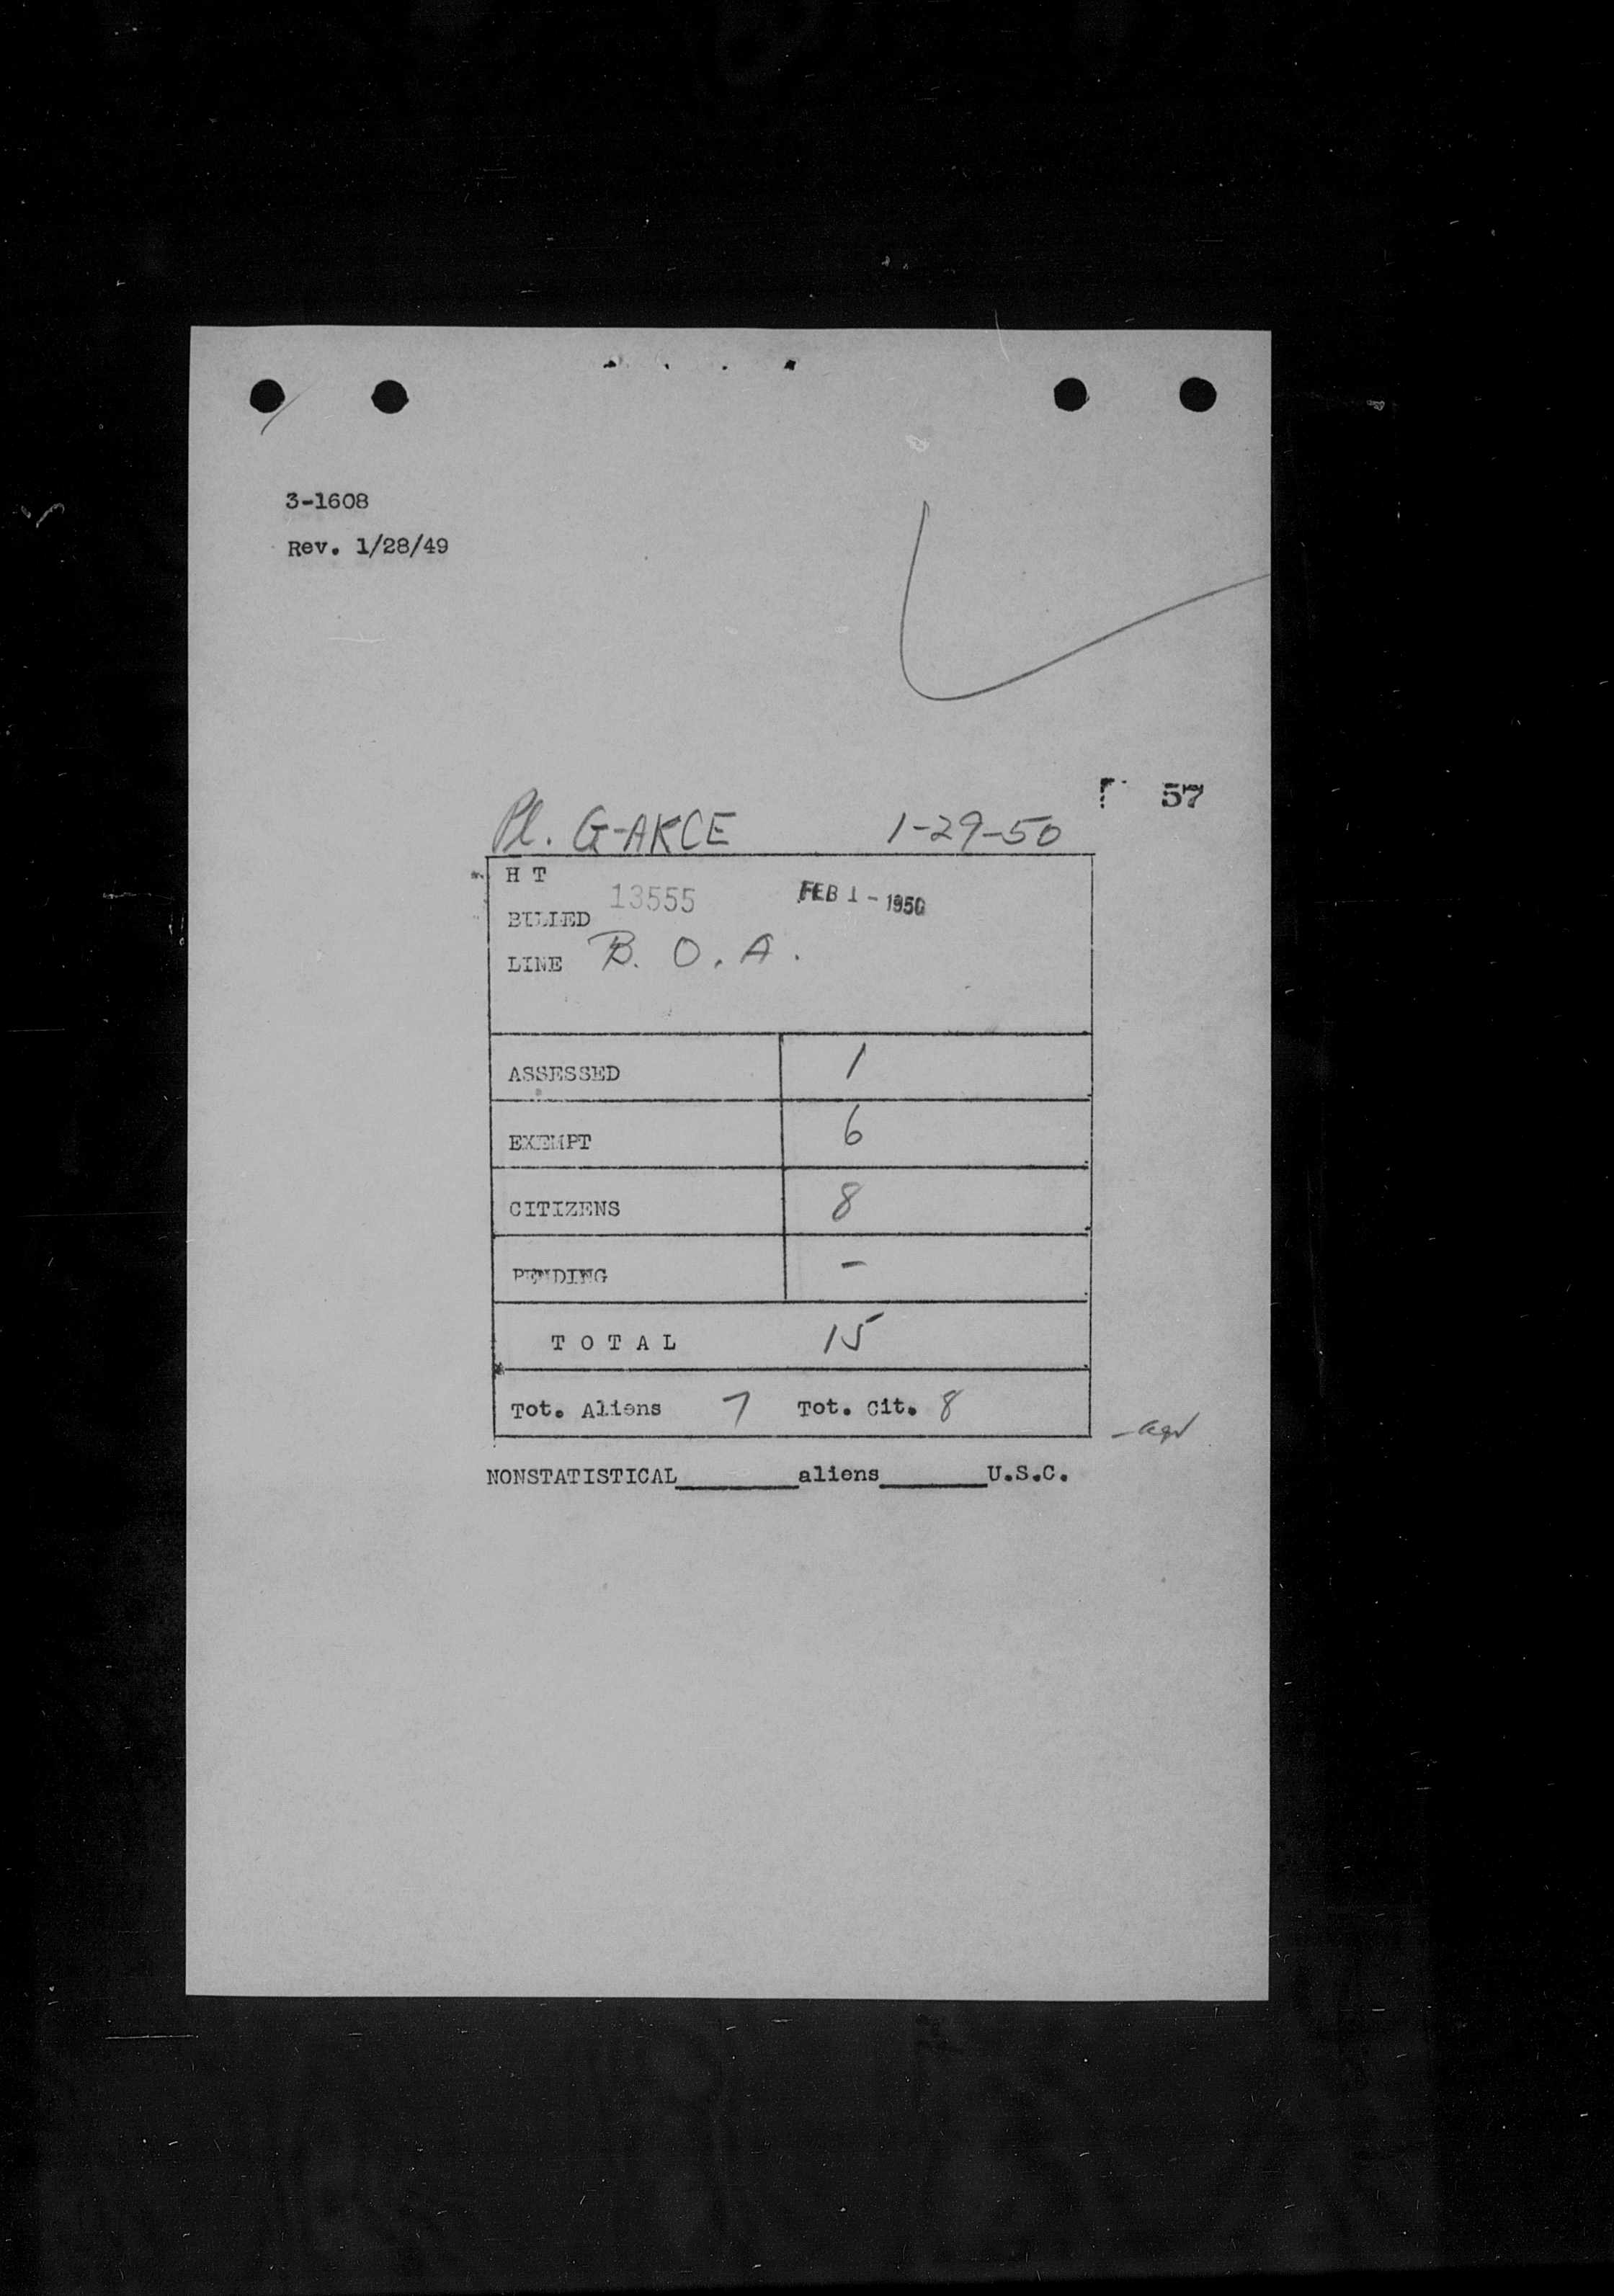 3-1608
Rev. 1/28/49
57
Pl. G-AKCE 1-29-50
H T
13555 FEB 1 - 1950
BILLED
LINE B. O. A.
ASSESSED 1
EXEMPT 6
CITIZENS 8
PENDING -
T O T A L 15
Tot. Aliens 7 Tot. Cit. 8
NONSTATISTICAL______aliens______U.S.C.